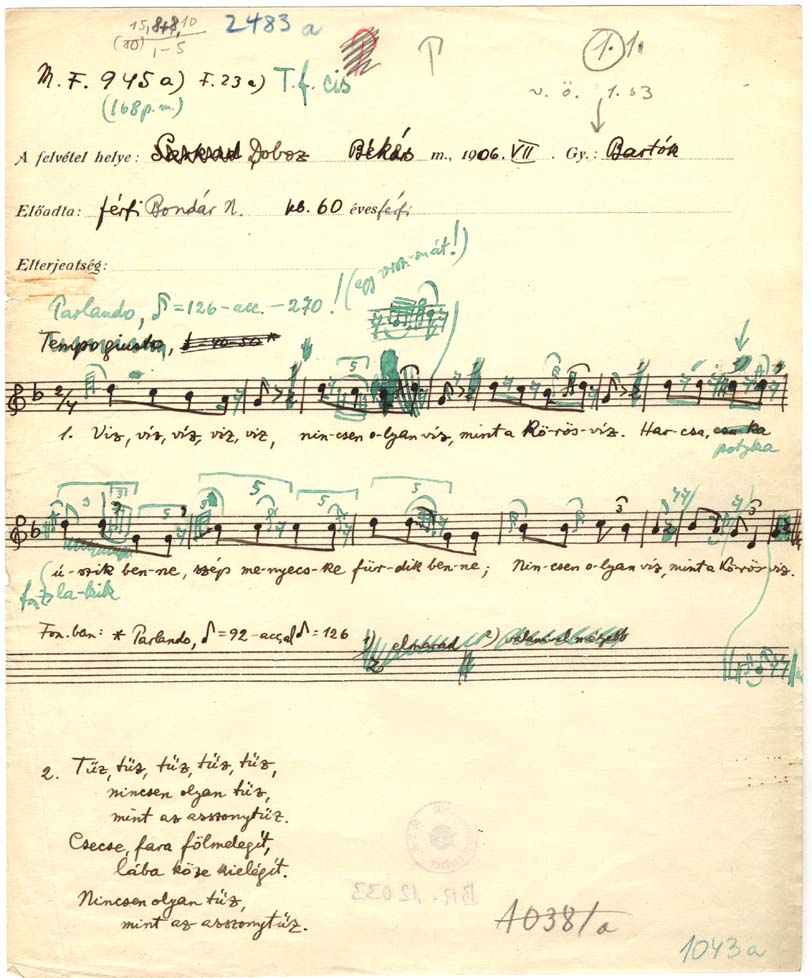 15, 8+8, 10
(10) 1-5
2483 a
1. 1.
M. F. 945 a) F. 23 a) T. f. cis
(168 p. m.)
v. ö. 1. b3
A felvétel helye: Doboz Békés m., 1906. VII. Gy.: Bartók
Előadta: férfi Bondár N. kb. 60 éves férfi
Elterjedtség:
Parlando, ♪=126-acc.-270!
Tempo giusto,
2/4
1. Viz, viz, viz, viz, viz, nin-csen o-lyan viz, mint a Kö-rös-viz. Har-csa, csu-ka
potyka
ú-szik ben-ne, szép me-nyecs-ke für-dik ben-ne; Nin-csen o-lyan viz, mint a Kö-rös-viz.
la-kik
Fon.ban: * Parlando, ♪=92-acc. al ♪=126 1) elmarad 2) valamivel mélyebb
2. Tűz, tűz, tűz, tűz, tűz,
nincsen olyan tűz,
mint az asszonytűz.
Csecse, fara fölmelegít,
lába köze kielégít.
Nincsen olyan tűz,
mint az asszonytűz.
BR-12033
1038/a
1043 a